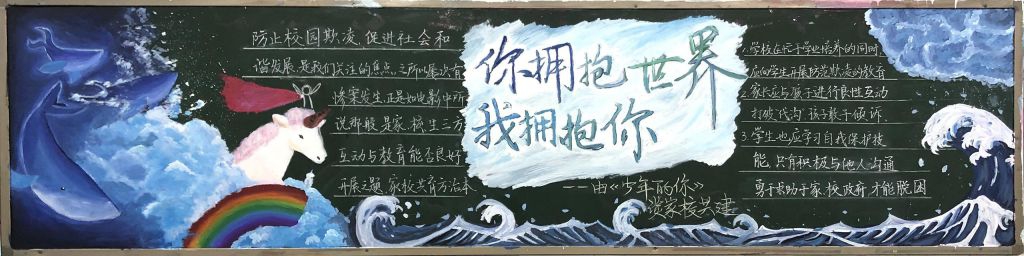 防止校园欺凌,促进社会和
谐发展,是我们关注的焦点,之所以屡次有
惨案发生,正是如电影中所
说那般,是家、校、生三方
互动与教育能否良好
开展之题,家校共育方治本
你拥抱世界
我拥抱你
——由《少年的你》
谈家校共建
1.学校在忙于学业培养的同时
应向学生开展防范欺凌的教育
2.家长应与孩子进行良性互动
打破代沟,孩子敢于倾诉.
3.学生也应学习自我保护技
能,只有积极与他人沟通
勇于求助于家、校、政府,才能脱困